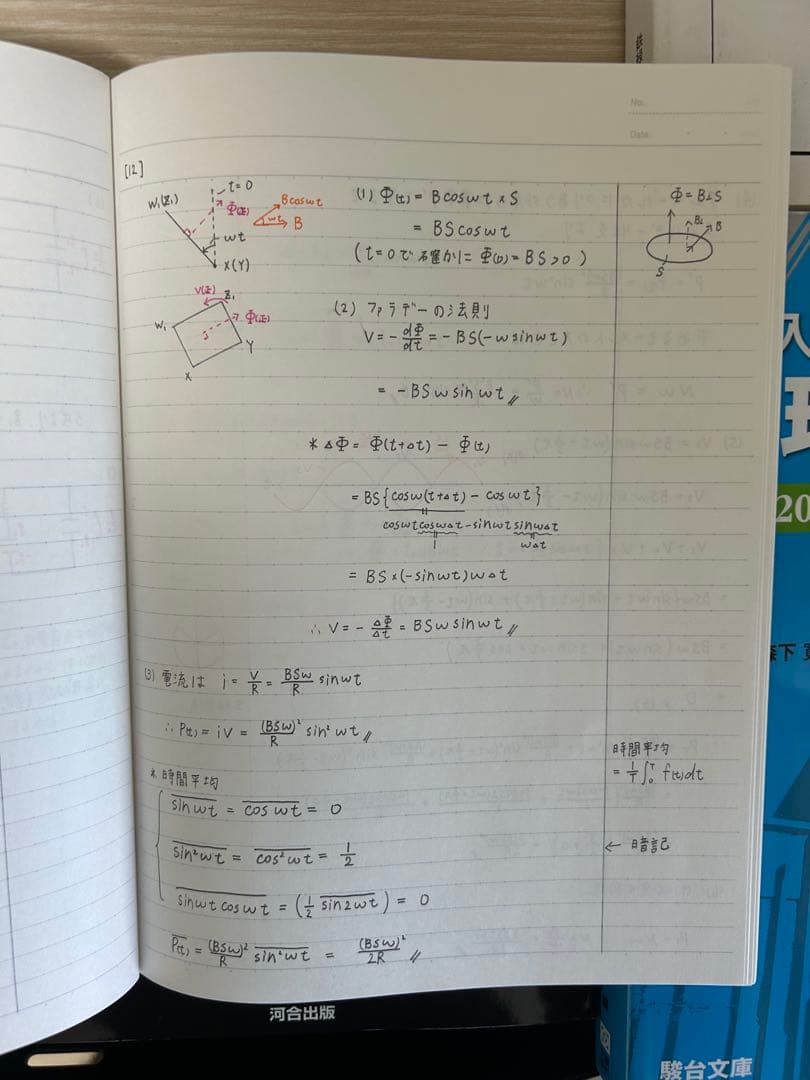 No.
Date
[12]
t=0
W₁(Z₁)
Φ(正)
ωt
X(Y)
Bcosωt
ωt
B
(1) Φ(t) = Bcosωt × S
= BScosωt
(t=0で確かに Φ(0)=BS>0)
Φ=B⊥S
B⊥
B
S
V(正)
Z₁
W₁
Φ(正)
S
Y
X
(2) ファラデーの法則
V = -dΦ/dt = -BS(-ωsinωt)
= -BSωsinωt
* ΔΦ = Φ(t+Δt) - Φ(t)
= BS{cosω(t+Δt) - cosωt}
cosωt cosωΔt - sinωt sinωΔt
1
ωΔt
= BS×(-sinωt)ωΔt
∴ V = -ΔΦ/Δt = BSωsinωt
(3) 電流は i = V/R = BSω/R sinωt
∴ P(t) = iV = (BSω)²/R sin²ωt
* 時間平均
sinωt = cosωt = 0
sin²ωt = cos²ωt = 1/2
sinωtcosωt = (1/2 sin2ωt) = 0
P(t) = (BSω)²/R sin²ωt = (BSω)²/2R
時間平均
= 1/T ∫₀ᵀ f(t)dt
← 暗記
河合出版
入
20
森下
駿台文庫